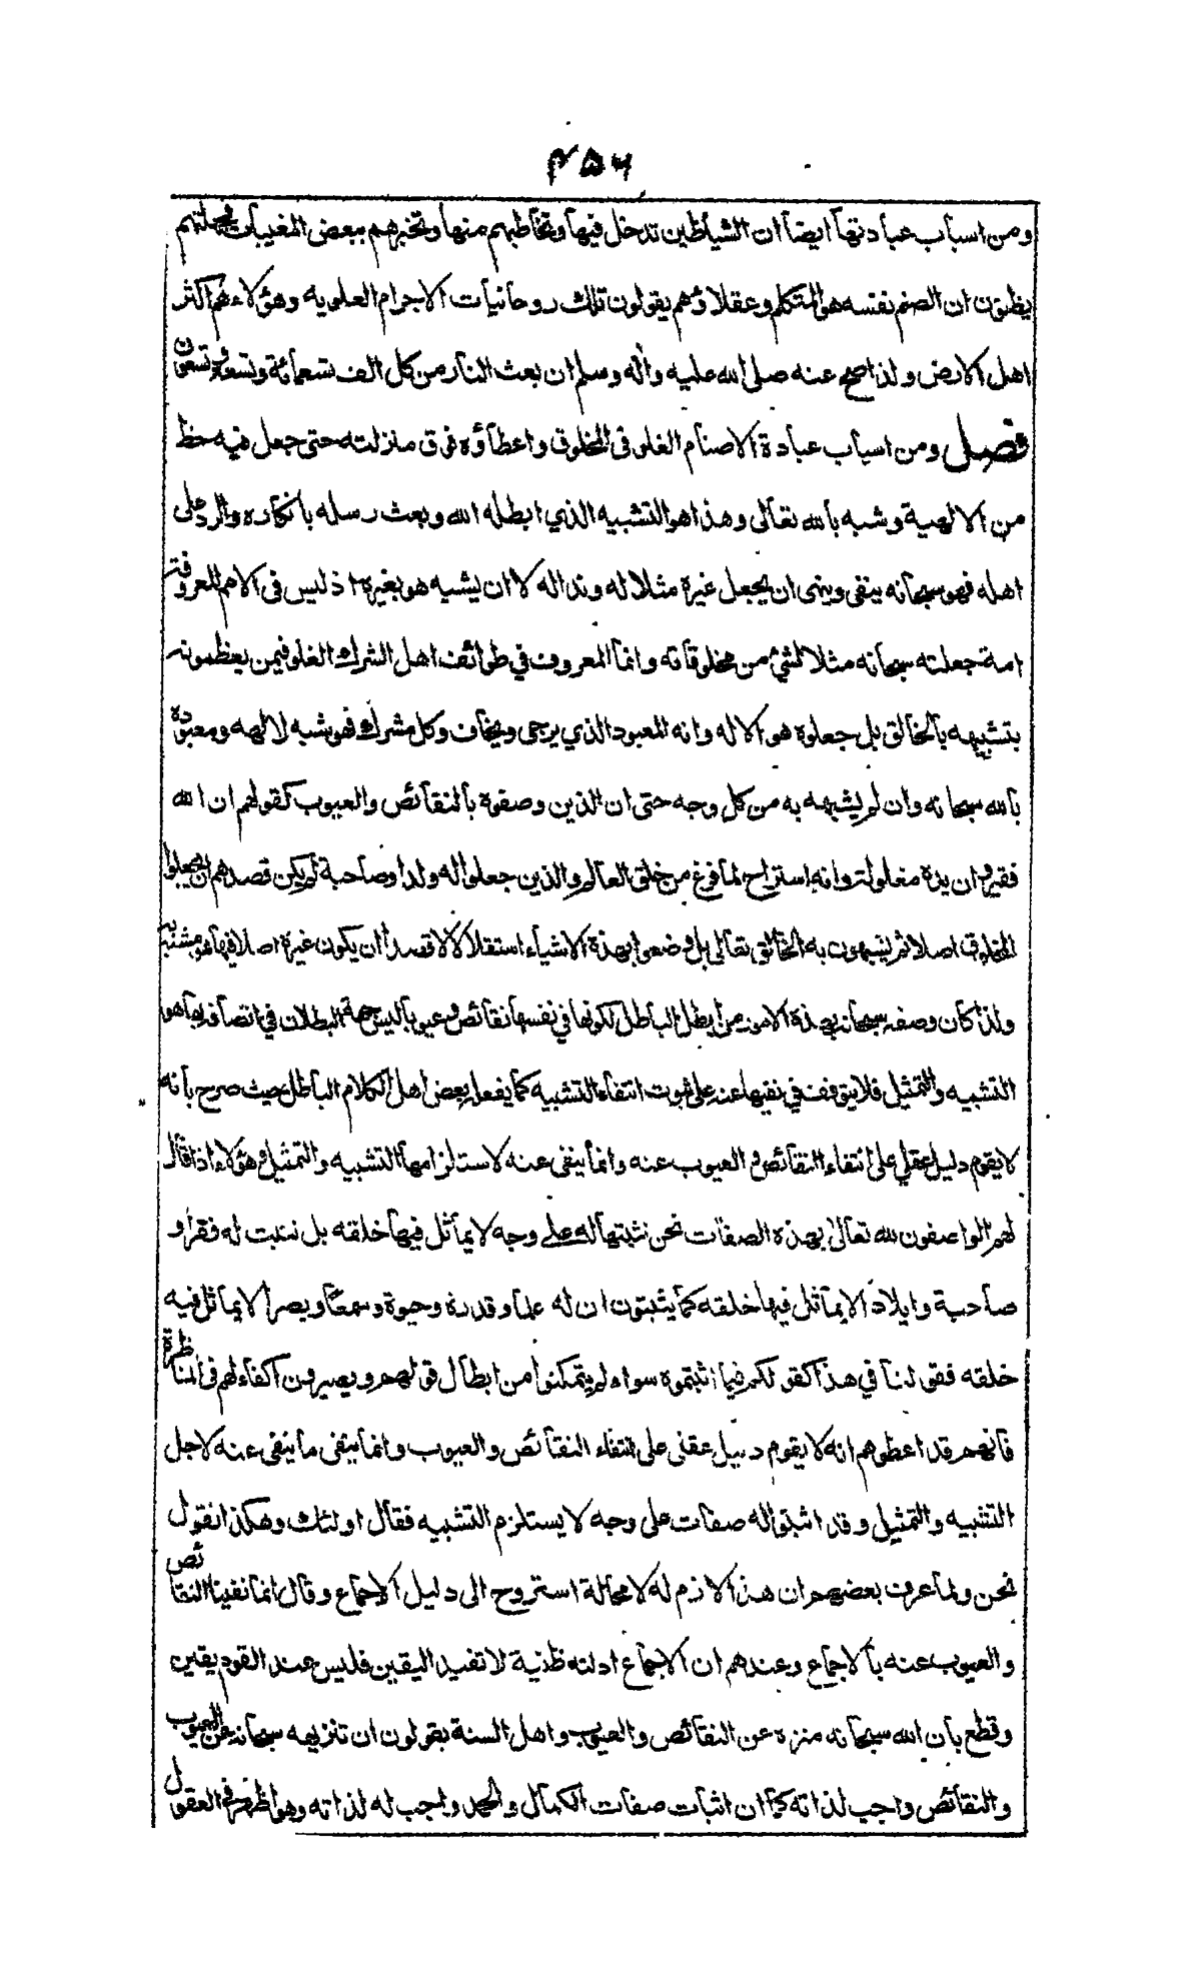 ۴۵۶
ومن اسباب عبادتها ايضا ان الشياطين تدخل فيها وتخاطبهم منها وتخبرهم ببعض المغيبات فجهلتهم
يظنون ان الصنم نفسه هو المتكلم وعقلاؤهم يقولون تلك روحانيات الاجرام العلويه وهؤلاءهم اكثر
اهل الارض ولذا صح عنه صلى الله عليه واله وسلم ان بعث النار من كل الف تسعمائة وتسعة وتسعون
فصل ومن اسباب عبادة الاصنام الغلو فى المخلوق واعطاؤه فوق منزلته حتى جعل فيه حظ
من الالهية وشبه بالله تعالى وهذا هو التشبيه الذي ابطله الله وبعث رسله بانكاره والرد على
اهله فهو سبحانه ينفى وينهى ان يجعل غيره مثلا له وندا له لا ان يشبه هو بغيره اذ ليس فى الامم المعروفة
امة جعلته سبحانه مثلا لشئ من مخلوقاته وانما المعروف في طوائف اهل الشرك الغلو فيمن يعظمونه
بتشبيهه بالخالق بل جعلوه هو الاله وانه المعبود الذي يرجى ويخاف وكل مشرك فهو شبه لالهه ومعبوده
بالله سبحانه وان لم يشبهه به من كل وجه حتى ان الذين وصفوه بالنقائص والعيوب كقولهم ان الله
فقير وان يده مغلولة وانه استراح لما فرغ من خلق العالم والذين جعلوا له ولدا وصاحبة لم يكن قصدهم ان يجعلوا
المخلوق اصلا ثم يشبهون به الخالق تعالى بل وضعوا بهذه الاشياء استقلالا لا قصدا ان يكون غيره اصلا فيها هو مشبه به
ولذا كان وصفه سبحانه بهذه الامور من ابطل الباطل لكونها في نفسها نقائص وعيوبا ليس جهة البطلان في اتصافه بها هو
التشبيه والتمثيل فلا يتوقف في نفيها عنه على ثبوت انتفاء التشبيه كما يفعل بعض اهل الكلام الباطل حيث صرح بانه
لا يقوم دليل عقلي على انتفاء النقائص والعيوب عنه وانما ينفى عنه لاستلزامها التشبيه والتمثيل وهؤلاء اذا قال
لهم الواصفون لله تعالى بهذه الصفات نحن نثبتها له على وجه لا يماثل فيها خلقه بل نثبت له فقرا و
صاحبة وايلادا لا يماثل فيها خلقه كما يثبتون ان له علما وقدرة وحيوة وسمعا وبصرا لا يماثل فيه
خلقه فقولنا في هذا كقولكم فيما اثبتموه سواء لم يتمكنوا من ابطال قولهم ويصيرون اكفاء لهم فى المناظرة
فانهم قد اعطوهم انه لا يقوم دليل عقلى على انتفاء النقائص والعيوب وانما ينفى ما ينفى عنه لاجل
التشبيه والتمثيل وقد اثبتوا له صفات على وجه لا يستلزم التشبيه فقال اولئك وهكذا نقول
نحن ولما عرف بعضهم ان هذا لازم له لا محالة استروح الى دليل الاجماع وقال انما نفينا النقائص
والعيوب عنه بالاجماع وعندهم ان الاجماع ادلته ظنية لا تفيد اليقين فليس عند القوم يقين
وقطع بان الله سبحانه منزه عن النقائص والعيوب واهل السنة يقولون ان تنزيهه سبحانه عن العيوب
والنقائص واجب لذاته كما ان اثبات صفات الكمال والحمد واجب له لذاته وهو اظهر فى العقول